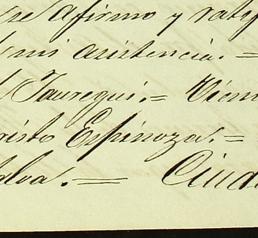 se afirmo y ratif
mi asistencia. =
Jauregui. = Vicen
risto Espinoza. =
alva. = Ciud